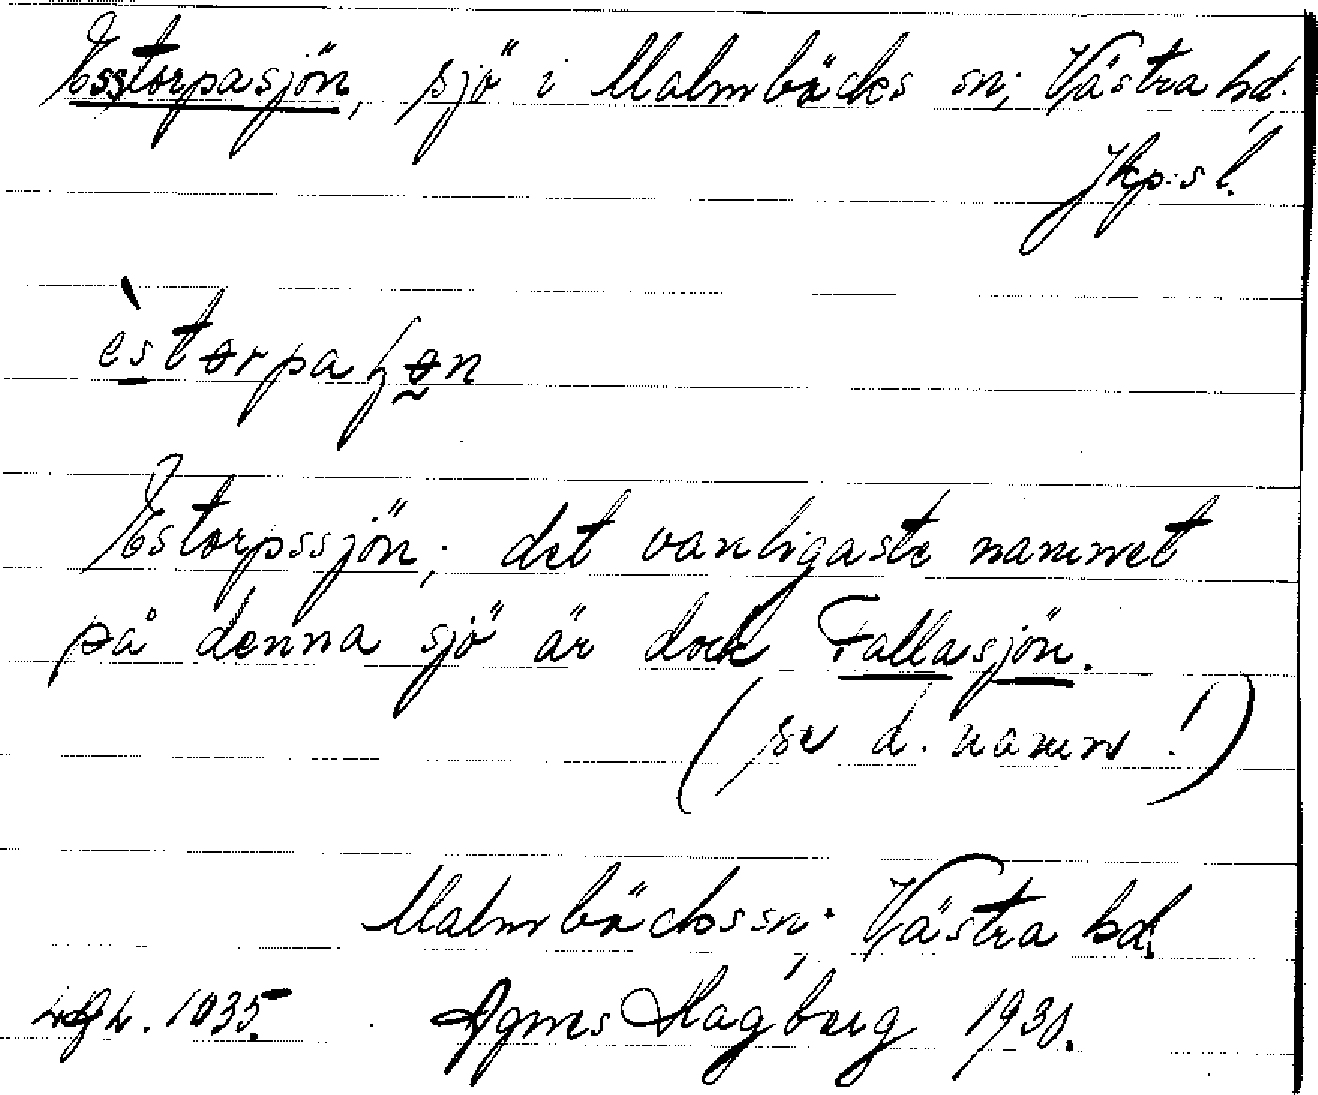 Esstorpasjön, sjö i Malmbäcks sn; Västra hd.
Jkp:s l.
èstorpaʃøn
Estorpssjön; det vanligaste namnet
på denna sjö är dock Fallasjön.
(se d. namn!)
Malmbäcks sn; Västra hd.
1035. Agnes Hagberg 1930.